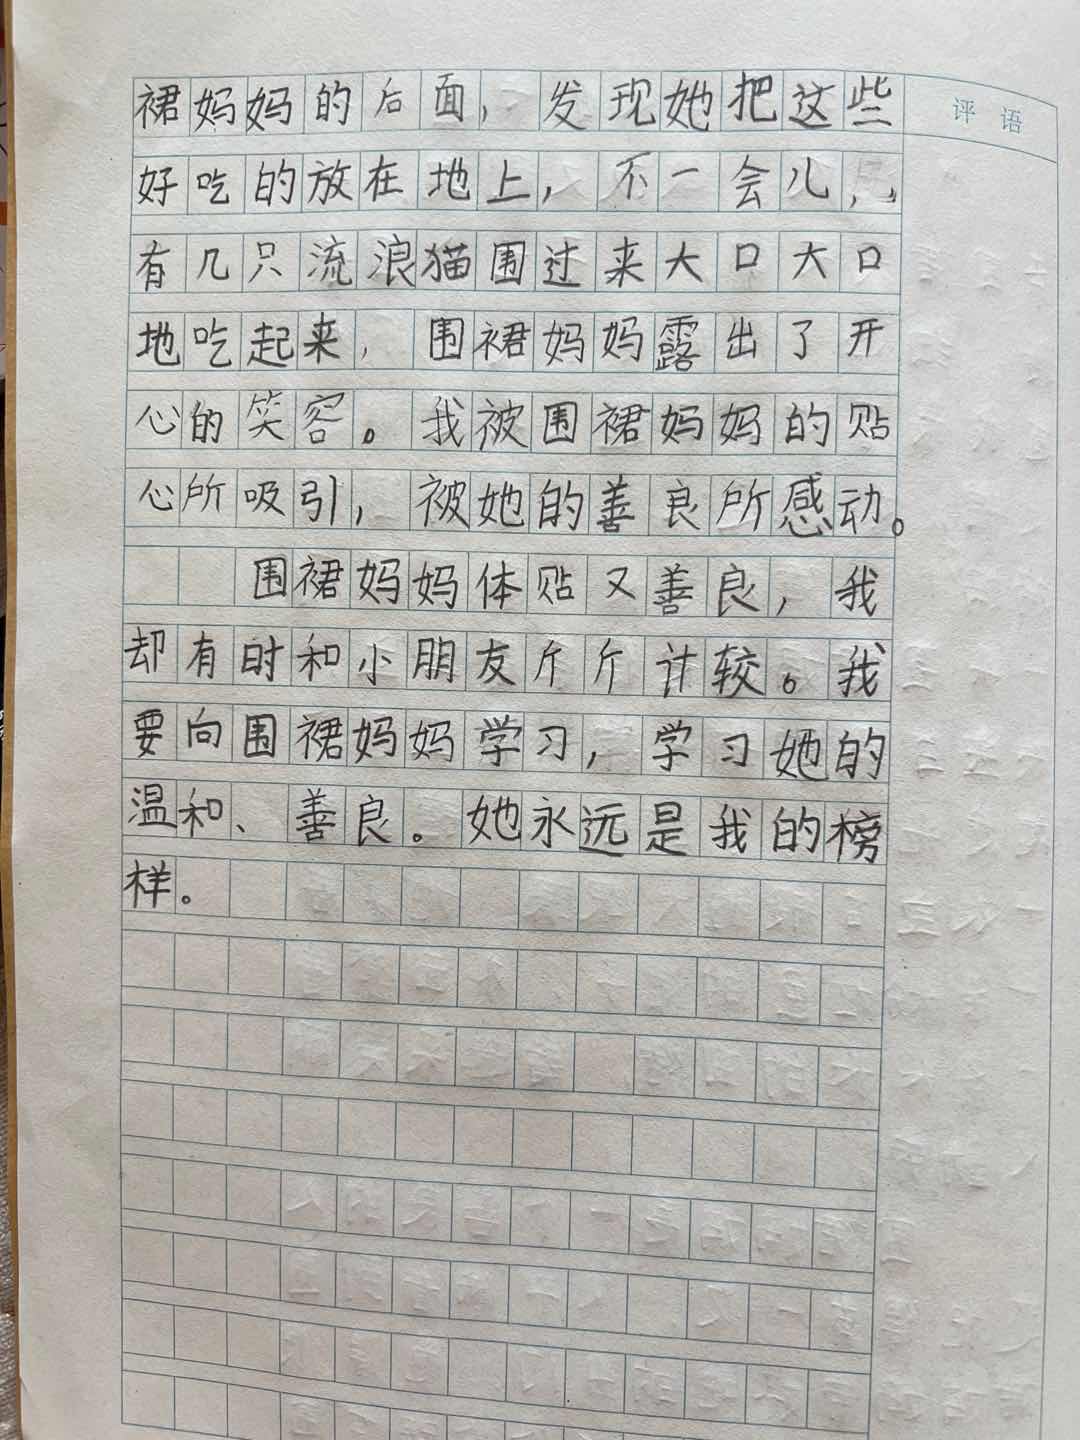 裙妈妈的后面，发现她把这些
评语
好吃的放在地上，不一会儿，
有几只流浪猫围过来大口大口
地吃起来，围裙妈妈露出了开
心的笑容。我被围裙妈妈的贴
心所吸引，被她的善良所感动。
围裙妈妈体贴又善良，我
却有时和小朋友斤斤计较。我
要向围裙妈妈学习，学习她的
温和、善良。她永远是我的榜
样。